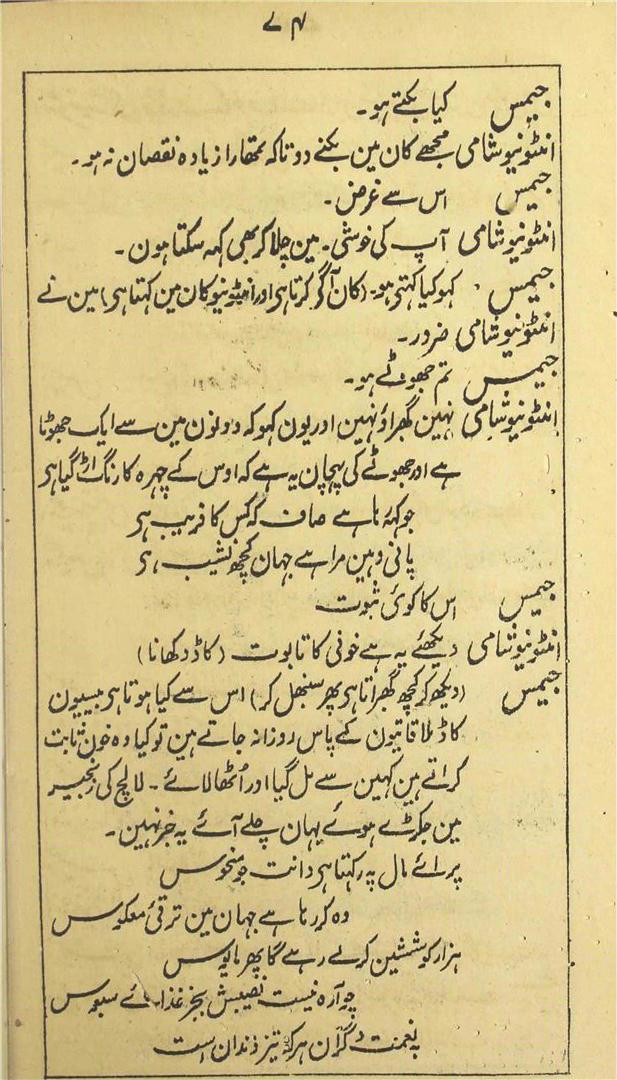 ۷۴
جیمس کیا بکتے ہو۔
انٹونیو شامی مجھے کان مین بکنے دو تاکہ تمھارا زیادہ نقصان نہ ہو۔
جیمس اس سے غرض۔
انٹونیو شامی آپ کی خوشی۔ مین چلا کر بھی کہہ سکتا ہون۔
جیمس کہو کیا کہتے ہو۔ (کان آگر کرتا ہی اور انٹونیو کان مین کہتا ہی) مین نے
انٹونیو شامی ضرور۔
جیمس تم جھوٹے ہو۔
انٹونیو شامی نہین گھبراؤ نہین اور یون کہو کہ دونون مین سے ایک جھوٹا
ہے اور جھوٹے کی پہچان یہ ہے کہ اوس کے چہرہ کا رنگ اڑ گیا ہی
جو کہہ رہا ہے صاف کہ کس کا فریب ہی
پانی وہین مرا ہے جہان کچھ نشیب ہی
جیمس اس کا کوئی ثبوت
انٹونیو شامی دیکھئے یہ ہے خونی کا تابوت (کاڈ دکھانا)
جیمس (دیکھ کر کچھ گھبراتا ہی پھر سنبھل کر) اس سے کیا ہوتا ہی بیسیون
کاڈ ملاقاتیون کے پاس روزانہ جاتے ہین تو کیا وہ خون ثابت
کراتے ہین کہین سے مل گیا اور اُٹھا لائے۔ لالچ کی زنجیر
مین جکڑے ہوئے یہان چلے آئے یہ خبر نہین۔
پرائے مال پہ رکھتا ہی دانت جو منحوس
وہ کر رہا ہے جہان مین ترقیٔ معکوس
ہزار کوششین کر لے رہے گا پھر مایوس
چہ آرہ نیست نصیبش بجز غذائے سبوس
بہ نعمت دگران ہر کہ تیز دندان است